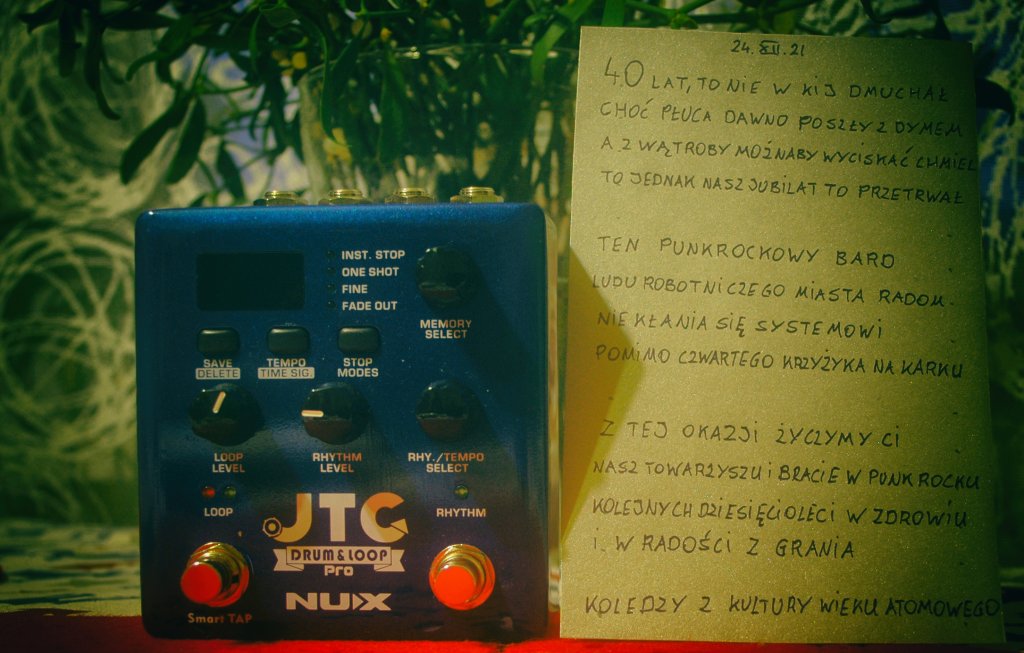 INST. STOP
ONE SHOT
FINE
FADE OUT
MEMORY
SELECT
SAVE
DELETE
TEMPO
TIME SIG.
STOP
MODES
LOOP
LEVEL
RHYTHM
LEVEL
RHY./TEMPO
SELECT
LOOP
RHYTHM
JTC
DRUM & LOOP
Pro
NUX
Smart TAP
24.XII.21
40 LAT, TO NIE W KIJ DMUCHAŁ
CHOĆ PŁUCA DAWNO POSZŁY Z DYMEM
A Z WĄTROBY MOŻNABY WYCISKAĆ CHMIEL
TO JEDNAK NASZ JUBILAT TO PRZETRWAŁ
TEN PUNKROCKOWY BARD
LUDU ROBOTNICZEGO MIASTA RADOM.
NIE KŁANIA SIĘ SYSTEMOWI
POMIMO CZWARTEGO KRZYŻYKA NA KARKU
Z TEJ OKAZJI ŻYCZYMY CI
NASZ TOWARZYSZU I BRACIE W PUNK ROCKU
KOLEJNYCH DZIESIĘCIOLECI W ZDROWIU
I W RADOŚCI Z GRANIA
KOLEDZY Z KULTURY WIEKU ATOMOWEGO